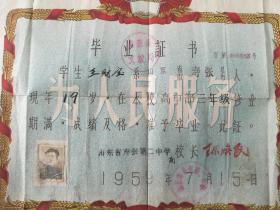 毕业证书
学生王 系山东省寿张县人
现年19岁在本校高中部三年级修业
期满成绩及格准予毕业此证
为人民服务
山东省寿张第二中学 校长
1959年7月15日